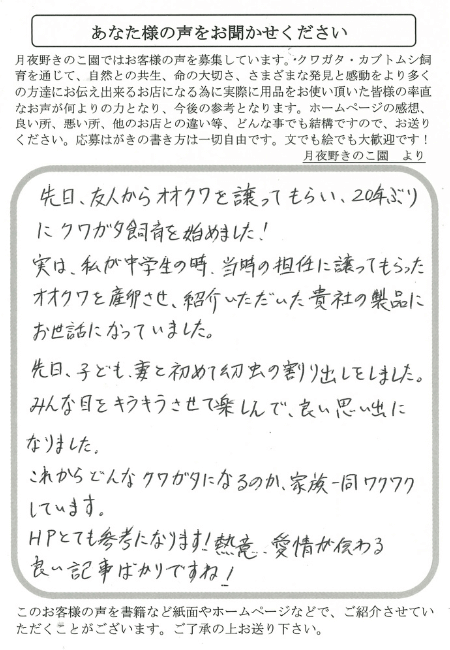 あなた様の声をお聞かせください
月夜野きのこ園ではお客様の声を募集しています。・クワガタ・カブトムシ飼
育を通じて、自然との共生、命の大切さ、さまざまな発見と感動をより多く
の方達にお伝え出来るお店になる為に実際に用品をお使い頂いた皆様の率直
なお声が何よりの力となり、今後の参考となります。ホームページの感想、
良い所、悪い所、他のお店との違い等、どんな事でも結構ですので、お送り
ください。応募はがきの書き方は一切自由です。文でも絵でも大歓迎です！
月夜野きのこ園　より
先日、友人からオオクワを譲ってもらい、20年ぶり
にクワガタ飼育を始めました！
実は、私が中学生の時、当時の担任に譲ってもらった
オオクワを産卵させ、紹介いただいた貴社の製品に
お世話になっていました。
先日、子ども、妻と初めて幼虫の割り出しをしました。
みんな目をキラキラさせて楽しんで、良い思い出に
なりました。
これからどんなクワガタになるのか、家族一同ワクワク
しています。
HPとても参考になります！熱意、愛情が伝わる
良い記事ばかりですね！
このお客様の声を書籍など紙面やホームページなどで、ご紹介させてい
ただくことがございます。ご了承の上お送り下さい。